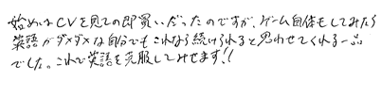 始めはCVを見ての即買いだったのですが、ゲーム自体もしてみたら
英語がダメダメな自分でもこれなら続けられると思わせてくれる一品
でした。これで英語を克服してみせます!!